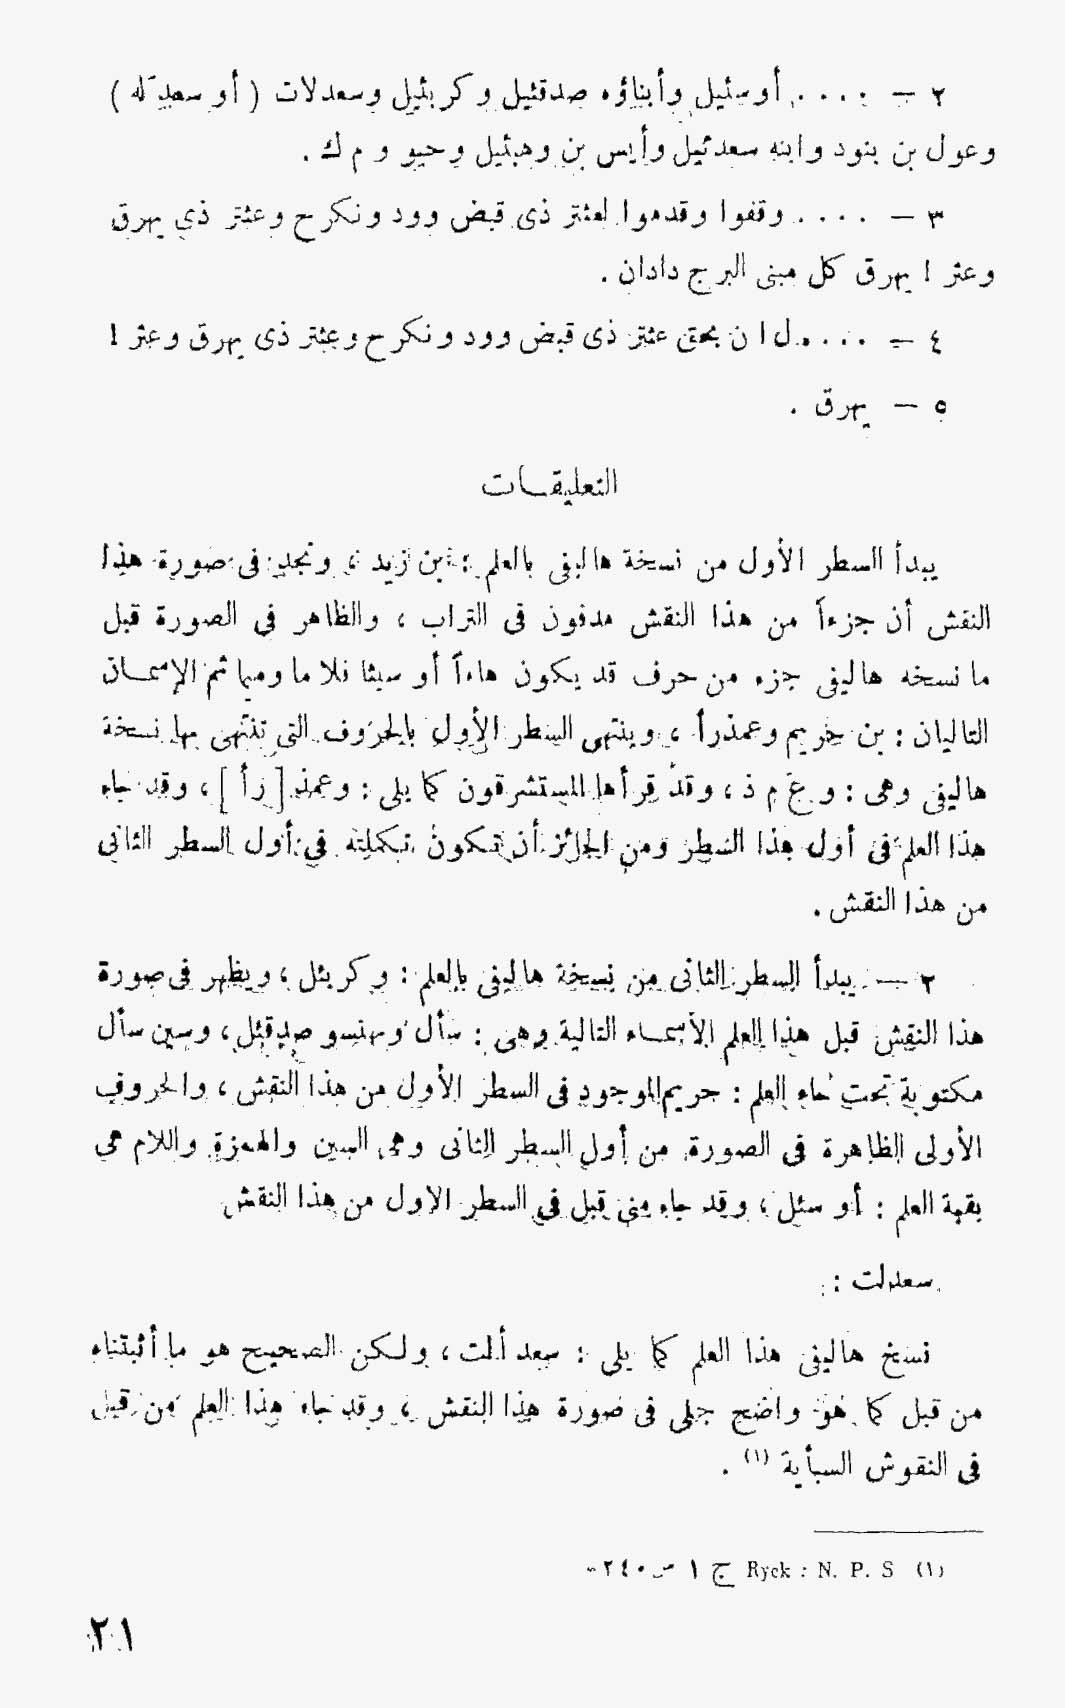 ٢ — . . . . أوسئيل وأبناؤه صدقئيل وكربئيل وسعدلات ( أو سعدلّه )
وعول بن ينود وابنه سعدئيل وأيس بن وهبئيل وحيو و م ك .
٣ — . . . . وقفوا وقدموا لعثتر ذى قبض وود ونكرح وعثتر ذي يهرق
وعثر ا يهرق كل مبنى البرج دادان .
٤ — . . . . ل ا ن بحق عثتر ذى قبض وود ونكرح وعثتر ذى يهرق وعثر ا
٥ — يهرق .
التعليقـات
يبدأ السطر الأول من نسخة هاليفى بالعلم : ابن زيد ، ونجد فى صورة هذا
النقش أن جزءاً من هذا النقش مدفون فى التراب ، والظاهر فى الصورة قبل
ما نسخه هاليفى جزء من حرف قد يكون هاءاً أو سيثا فلا ما وميما ثم الإسمـان
التاليان : بن حريم وعمذرأ ، وينتهى السطر الأول بالحروف التى تنتهى بها نسخة
هاليفى وهى : و ع م ذ ، وقد قرأها المستشرقون كما يلى : وعمذ [ رأ ] ، وقد جاء
هذا العلم فى أول هذا السطر ومن الجائز أن تـكون تـكملته فى أول السطر الثانى
من هذا النقش .
٢ — يبدأ السطر الثانى من نسخة هاليفى بالعلم : وكربئل ، ويظهر فى صورة
هذا النقش قبل هذا العلم الأسمـاء التالية وهى : سأل وبهنسو صدقئل ، وسين سأل
مكتوبة تحت حاء العلم : حريم الموجود فى السطر الأول من هذا النقش ، والحروف
الأولى الظاهرة فى الصورة من أول السطر الثانى وهى السين والهمزة واللام هى
بقية العلم : أو سئل ، وقد جاء منى قبل في السطر الاول من هذا النقش
سعدلت :
نسخ هاليفى هذا العلم كما يلى : سعد ألت ، ولـكن الصحيح هو ما أثبتناه
من قبل كما هو واضح جلى فى صورة هذا النقش ، وقد جاء هذا العلم من قبل
فى النقوش السبأية (١) .
(١) Ryck : N. P. S ج ١ ص ٢٤٠
٢١